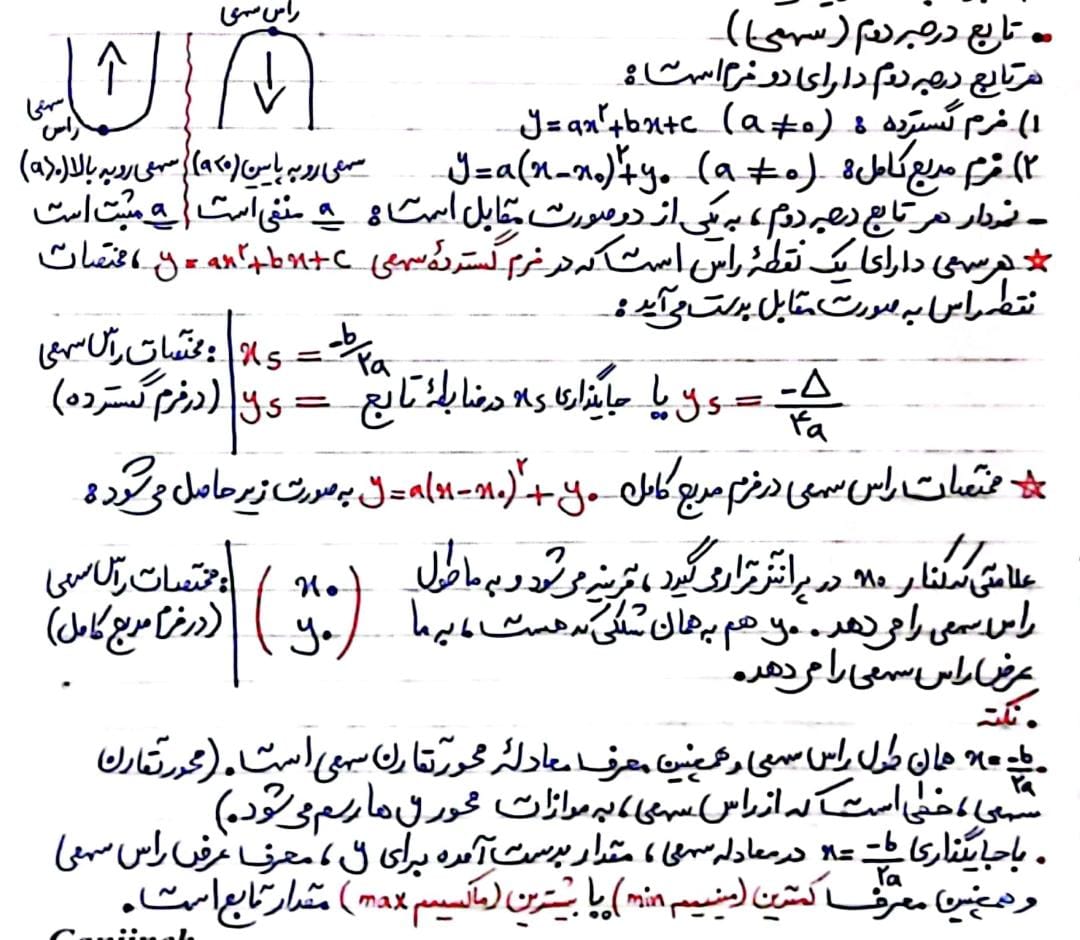 راس سهمی
• تابع درجه دوم (سهمی)
هر تابع درجه دوم دارای دو فرم است:
سهمی
راس
۱) فرم گسترده: y=ax²+bx+c (a≠۰)
۲) فرم مربع کامل: y=a(x-x₀)²+y₀ (a≠۰)
سهمی رو به پایین (a<۰) سهمی رو به بالا (a>۰)
- نمودار هر تابع درجه دوم، به یکی از دو صورت مقابل است: a منفی است a مثبت است
☆ هر سهمی دارای یک نقطهٔ راس است که در فرم گستردهٔ سهمی y=ax²+bx+c، مختصات
نقطه راس به صورت مقابل بدست می‌آید:
مختصات راس سهمی: xs = -b/۲a
(در فرم گسترده) ys = جایگذاری xs در ضابطهٔ تابع یا ys = -Δ/۴a
☆ مختصات راس سهمی در فرم مربع کامل y=a(x-x₀)²+y₀ به صورت زیر حاصل می‌شود:
علامتی که کنار x₀ در پرانتز قرار می‌گیرد، قرینه می‌شود و به ما طول
راس سهمی را می‌دهد. y₀ هم به همان شکلی که هست، به ما
عرض راس سهمی را می‌دهد.
مختصات راس سهمی: (x₀
(در فرم مربع کامل) y₀)
• نکته
• x=-b/۲a همان طول راس سهمی و همچنین معرف معادلهٔ محور تقارن سهمی است. (محور تقارن
سهمی، خطی است که از راس سهمی، به موازات محور y ها رسم می‌شود.)
• با جایگذاری x=-b/۲a در معادله سهمی، مقدار بدست آمده برای y، معرف عرض راس سهمی
و همچنین معرف کمترین (مینیمم min) یا بیشترین (ماکسیمم max) مقدار تابع است.